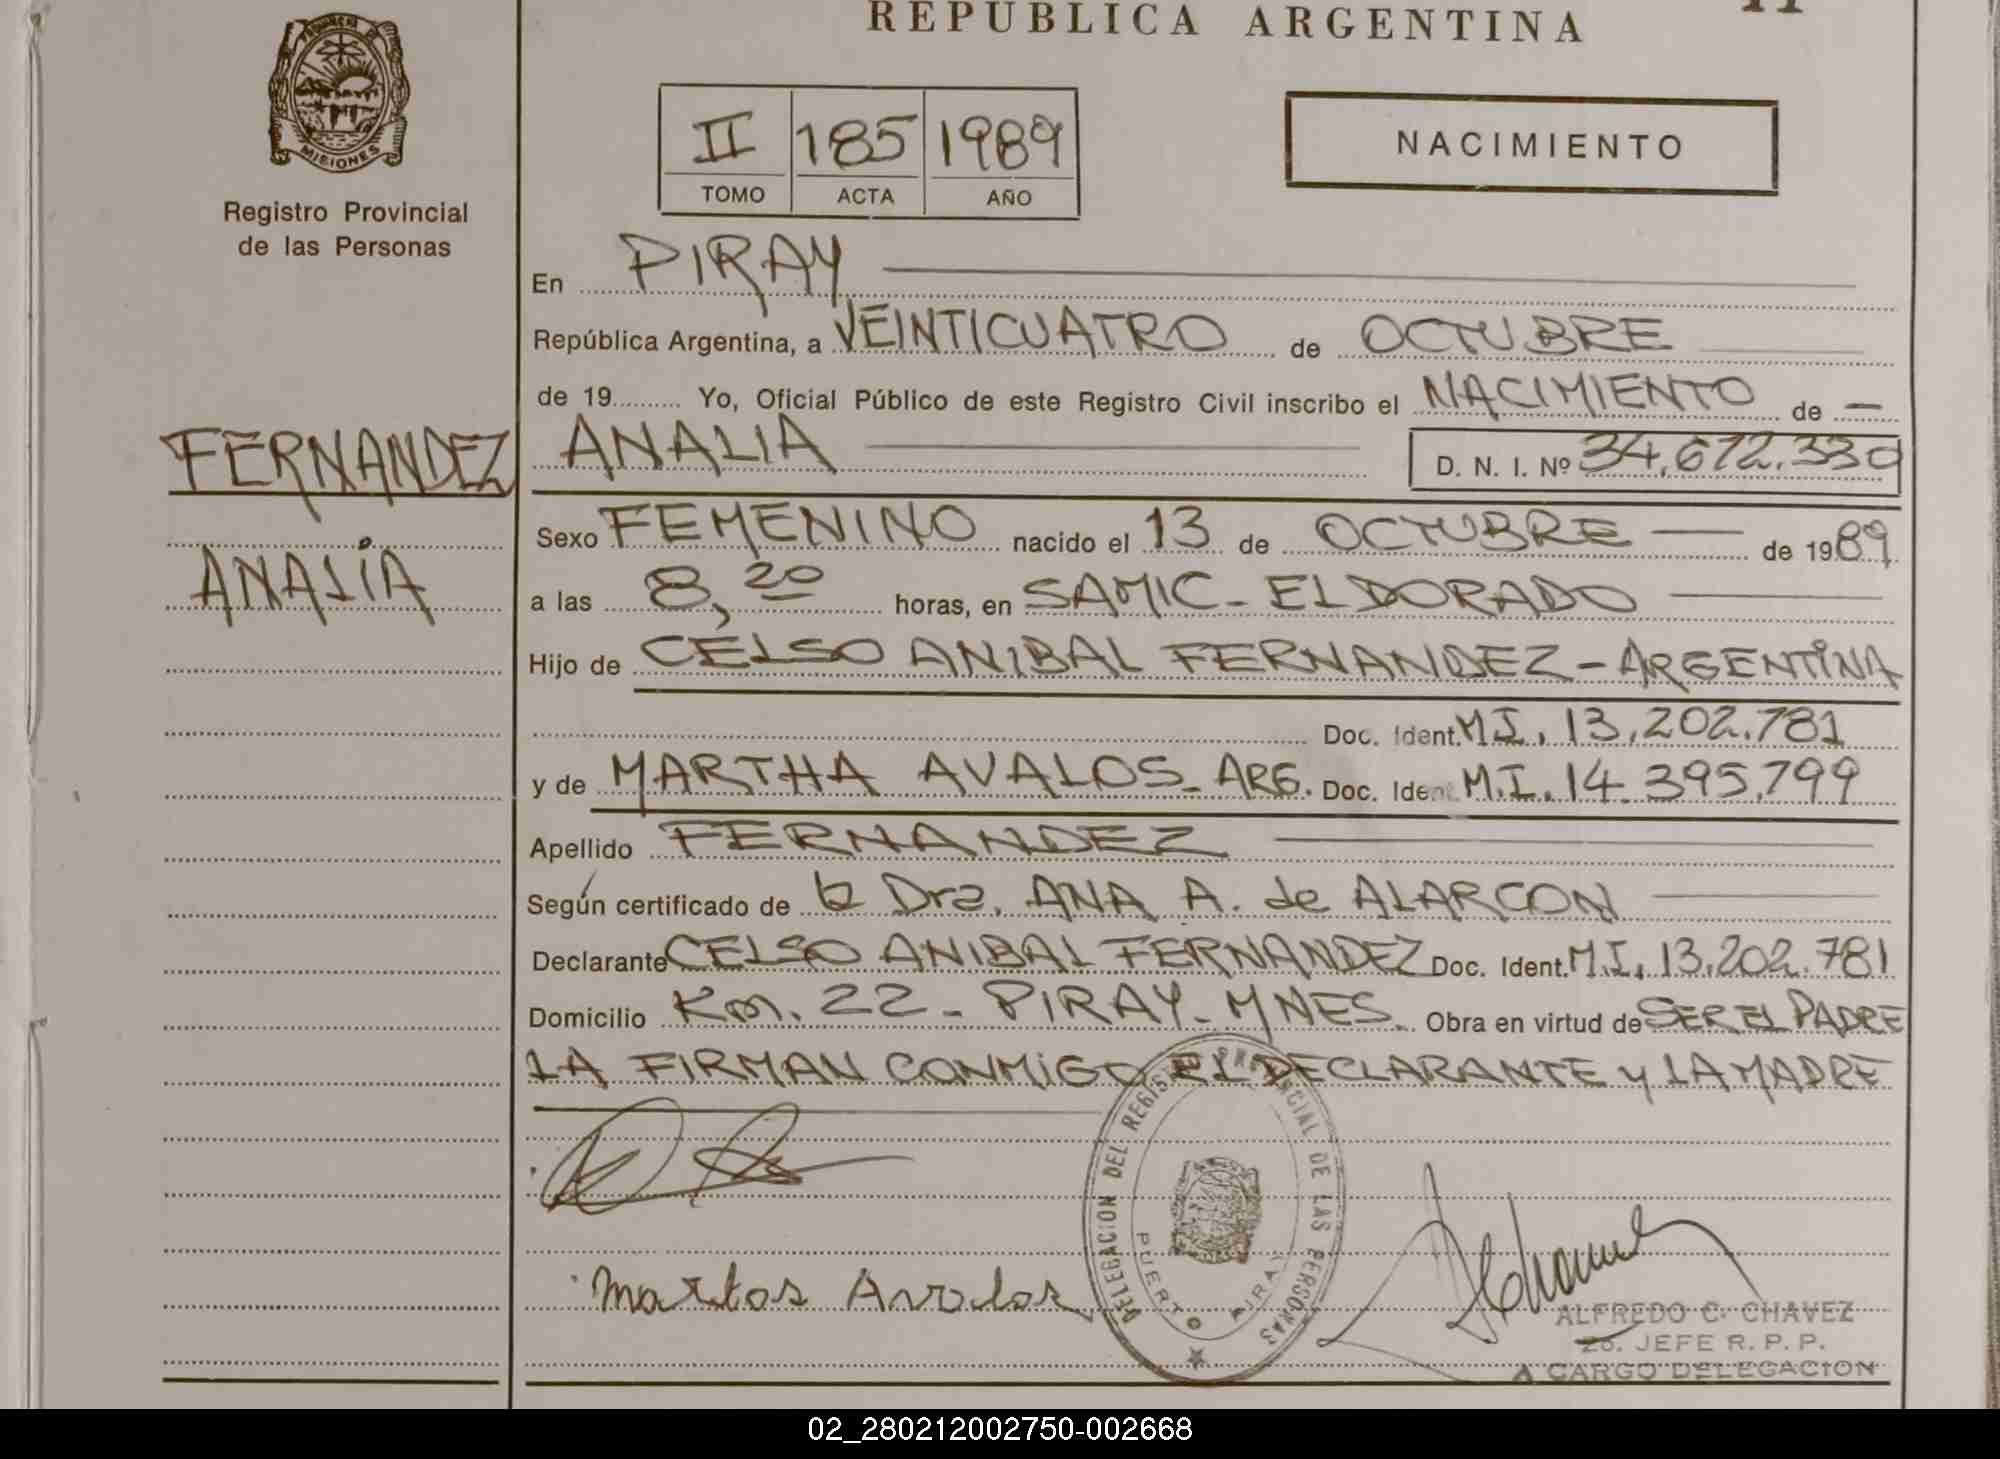 REPUBLICA ARGENTINA
MISIONES
Registro Provincial
de las Personas
II 185 1989
TOMO ACTA AÑO
NACIMIENTO
En PIRAY
República Argentina, a VEINTICUATRO de OCTUBRE
de 19......... Yo, Oficial Público de este Registro Civil inscribo el NACIMIENTO de —
FERNANDEZ
ANALIA
ANALIA D. N. I. Nº 34.672.330
Sexo FEMENINO nacido el 13 de OCTUBRE de 1989
a las 8,20 horas, en SAMIC - ELDORADO
Hijo de CELSO ANIBAL FERNANDEZ - ARGENTINA
Doc. Ident. M.I. 13.202.781
y de MARTHA AVALOS - ARG. Doc. Ident. M.I. 14.395.799
Apellido FERNANDEZ
Según certificado de la Dra. ANA A. de ALARCON
Declarante CELSO ANIBAL FERNANDEZ Doc. Ident. M.I. 13.202.781
Domicilio Km. 22 - PIRAY - MNES. Obra en virtud de SER EL PADRE
LA FIRMAN CONMIGO EL DECLARANTE y LA MADRE
DELEGACION DEL REGISTRO PROVINCIAL DE LAS PERSONAS
PUERTO PIRAY
Martos Avalos
ALFREDO C. CHAVEZ
2o. JEFE R. P. P.
A CARGO DELEGACION
02_280212002750-002668